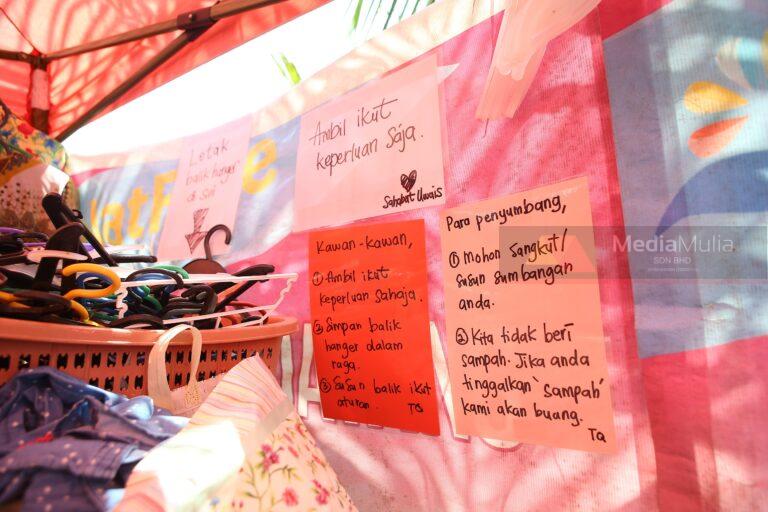 Letak
balik hanger
di sini
Ambil ikut
keperluan saja.
Sahabat Uwais
Kawan-kawan,
① Ambil ikut
keperluan sahaja.
② Simpan balik
hanger dalam
raga.
③ Susun balik ikut
aturan. TQ
Para penyumbang,
① Mohon sangkut/
susun sumbangan
anda.
② Kita tidak beri
sampah. Jika anda
tinggalkan 'sampah'
kami akan buang.
TQ
MediaMulia
SDN BHD